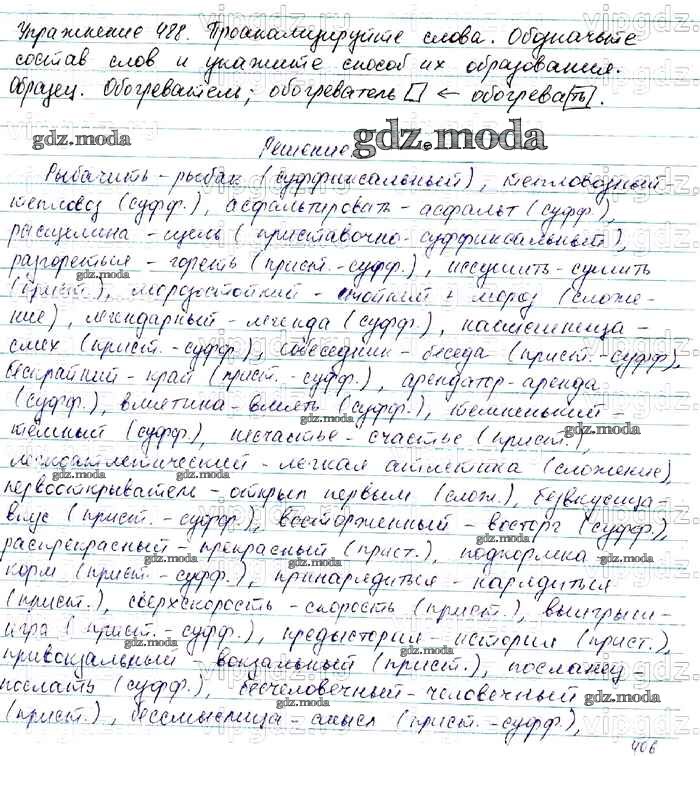 Упражнение 488. Проанализируйте слова. Обозначьте
состав слов и укажите способ их образования.
Образец. Обогреватель; обогреватель ← обогрева(ть).
Решение.
gdz.moda
Рыбачить - рыбак (суффиксальный), тепловозный -
тепловоз (суфф.), асфальтировать - асфальт (суфф.),
расщелина - щель (приставочно-суффиксальный),
разгореться - гореть (прист.-суфф.), иссушить - сушить
(прист.), морозостойкий - стойкий + мороз (сложе-
ние), легендарный - легенда (суфф.), насмешница -
смех (прист.-суфф.), собеседник - беседа (прист.-суфф),
бескрайний - край (прист.-суфф.), арендатор - аренда
(суфф.), вмятина - вмять (суфф.), темненький -
тёмный (суфф.), несчастье - счастье (прист.),
легкоатлетический - легкая атлетика (сложение),
первооткрыватель - открыл первым (слож.), безвкусица -
вкус (прист.-суфф.), восторженный - восторг (суфф.),
распрекрасный - прекрасный (прист.), подкормка -
корм (прист.-суфф.), принарядиться - нарядиться
(прист.), сверхскорость - скорость (прист.), выигрыш -
игра (прист.-суфф.), предыстория - история (прист.),
привокзальный - вокзальный (прист.), посланец -
послать (суфф.), бесчеловечный - человечный
(прист.), бессмыслица - смысл (прист.-суфф.),
406